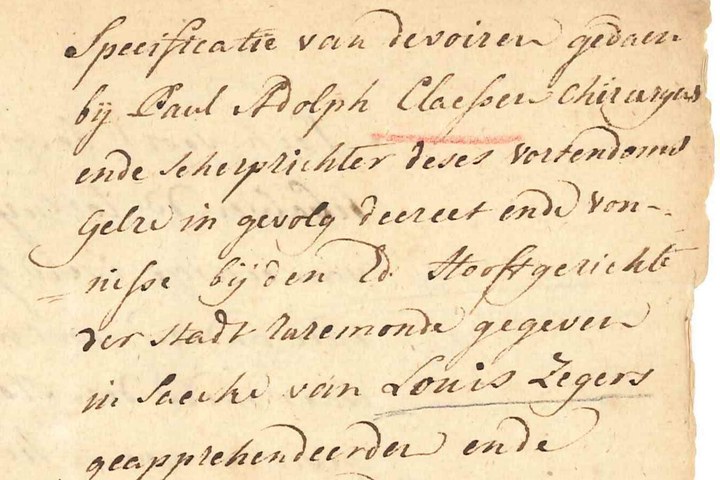 Specificatie van devoiren gedaen
bij Paul Adolph Claessen Chirurgus
ende scherprichter deses vortendoms
Gelre in gevolg decreet ende von-
nisse bij den Ed Hooftgerichte
der stadt Ruremonde gegeven
in saecke van Louis Zegers
geapprehendeerden ende